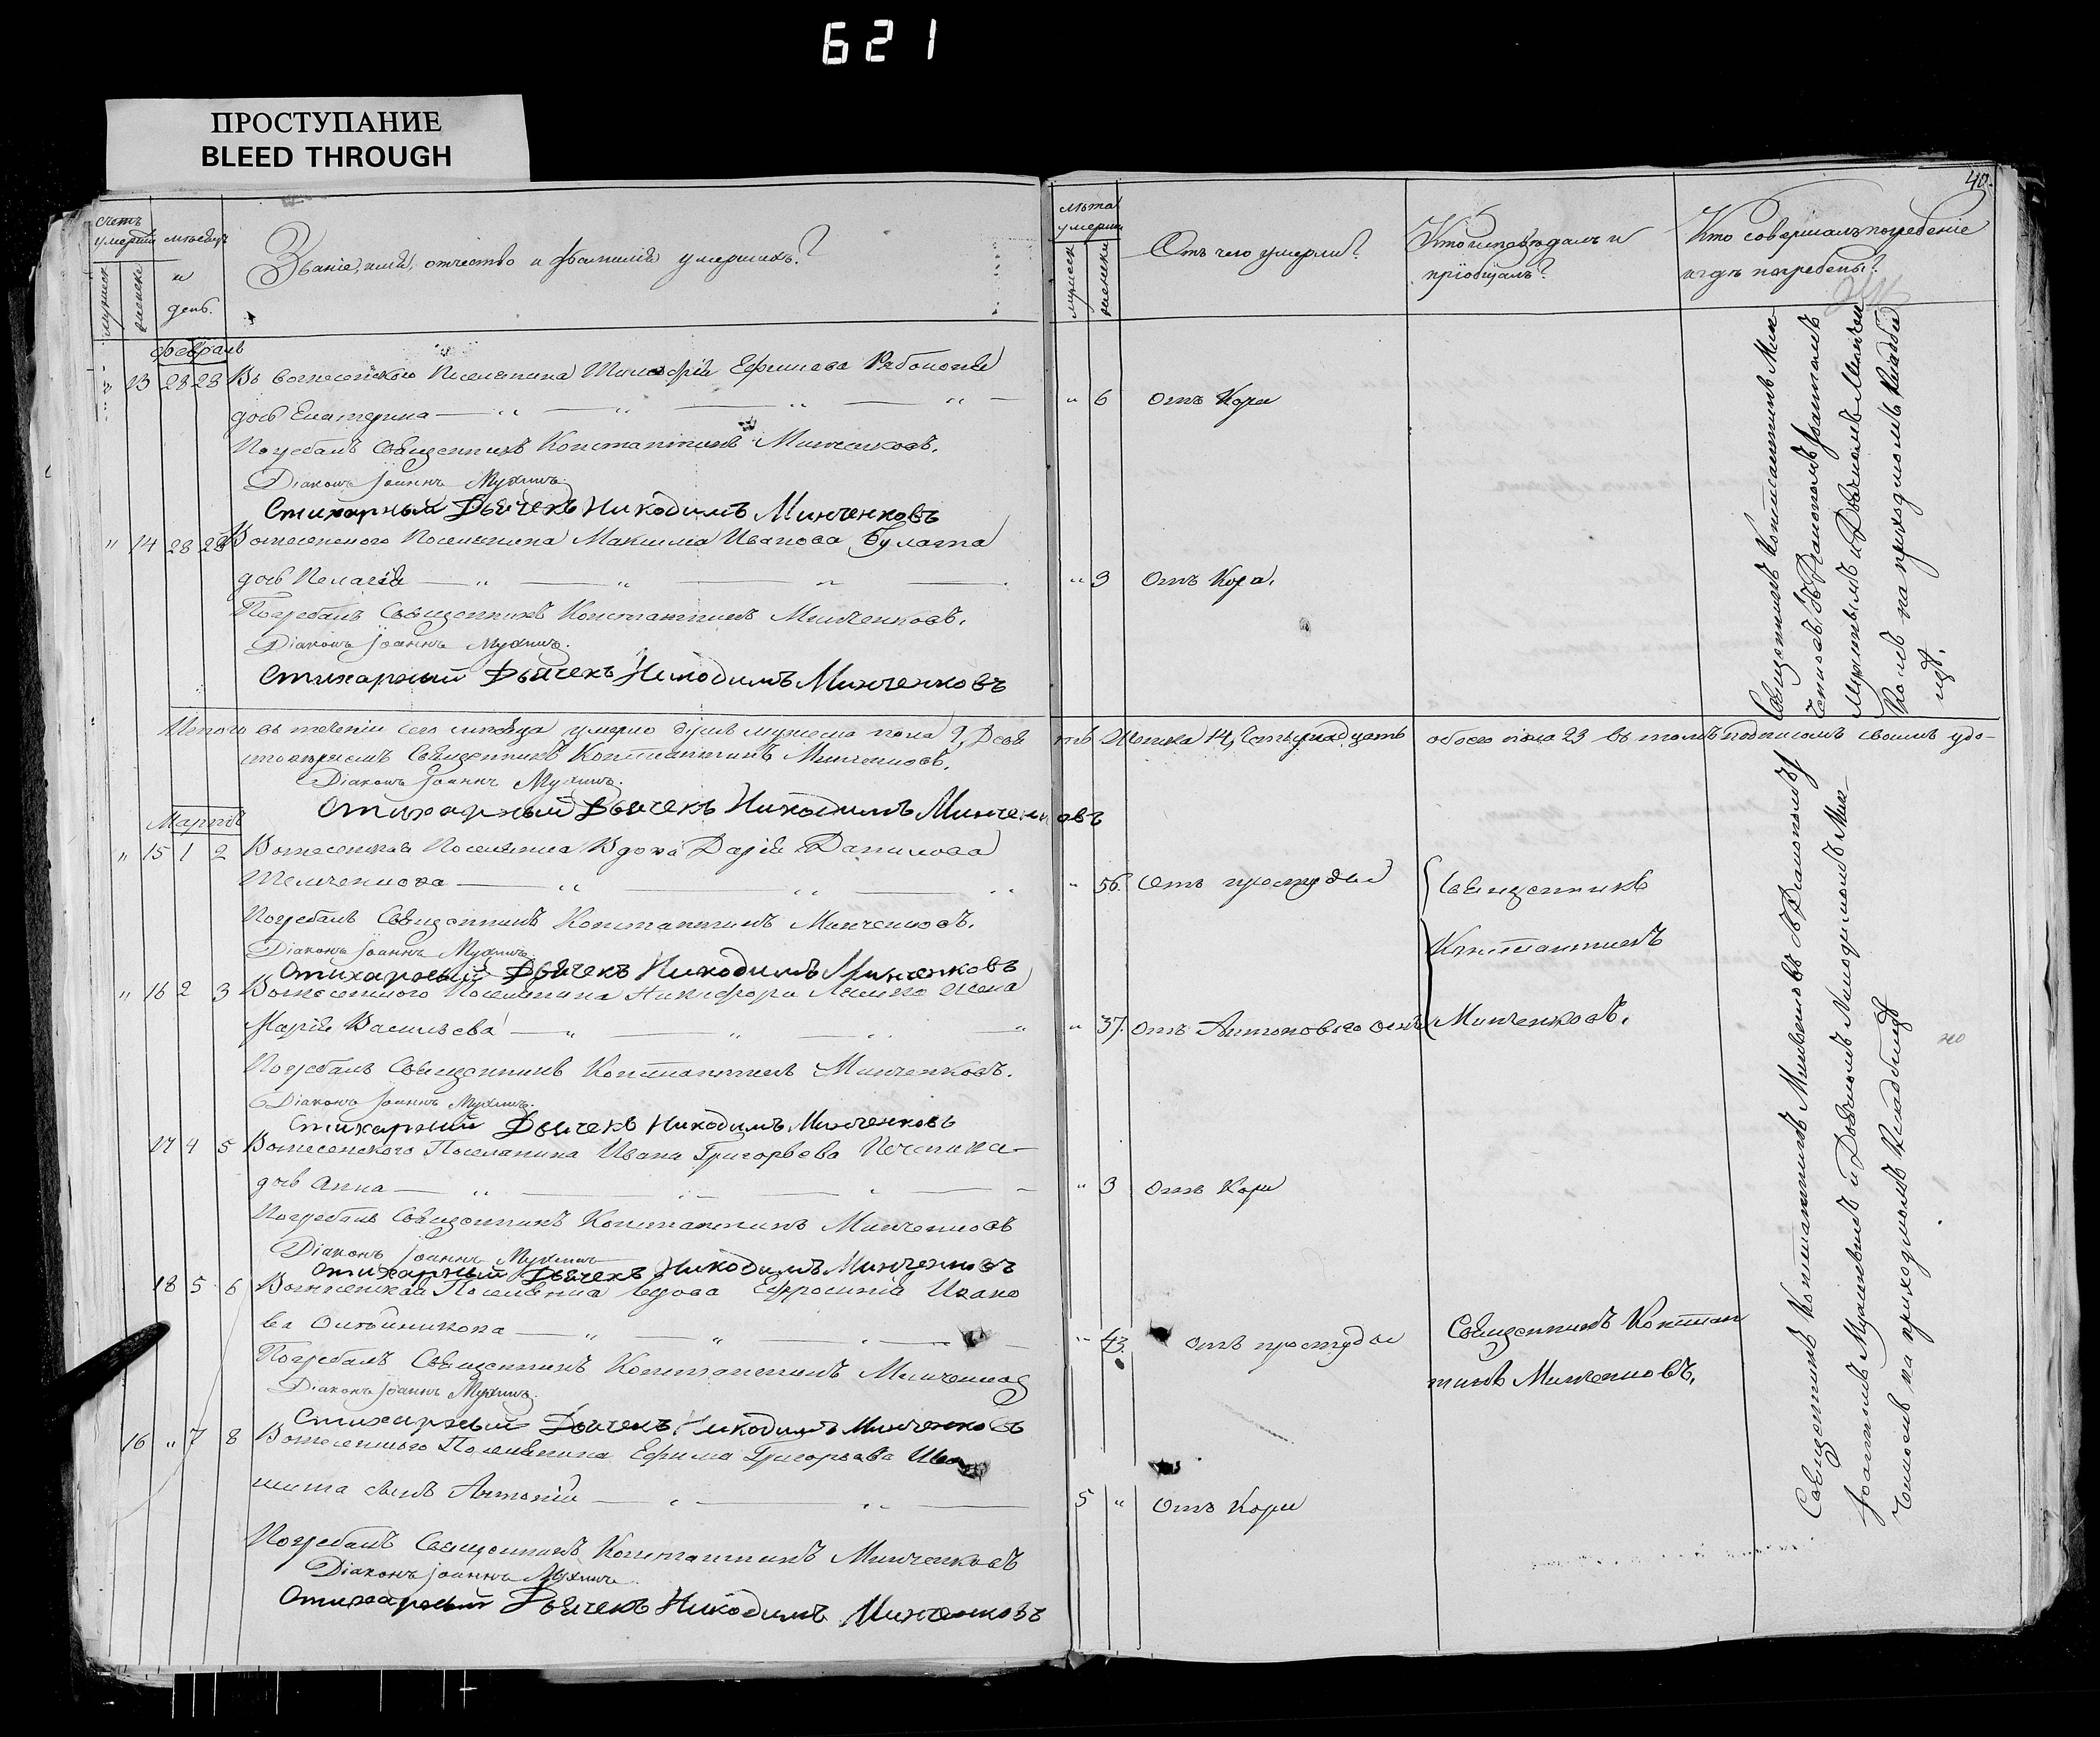 621
ПРОСТУПАНИЕ
BLEED THROUGH
40.
Счетъ умершихъ
мужеск
женск
мѣсяцъ и день.
Званіе, имя, отчество и фамилія умершихъ?
лѣта умерш
мужеск
женски
Отъ чего умерли?
Кто исповѣдалъ и пріобщалъ?
Кто совершалъ погребеніе и гдѣ погребены?
Февраль
" 13 28 28 Вознесенскаго Поселянина Ефимова
дочь Екатерина " 6 отъ Кори
Погребалъ Священникъ Константинъ Минченковъ.
Діаконъ Іоаннъ Мухинъ.
Стихарный Дьячекъ Никодимъ Минченковъ
" 14 28 28 Вознесенского Поселянина Максима Иванова Булата
дочь Пелагія " 3 отъ Кори.
Погребалъ Священникъ Константинъ Минченковъ.
Діаконъ Іоаннъ Мухинъ.
Стихарный Дьячекъ Никодимъ Минченковъ
Священникъ Константинъ Мин
ченковъ съ Діакономъ Іоанномъ
Мухинымъ и Дьячкомъ Минчен
ковъ на приходскомъ Кладби
щѣ.
Итого въ теченіи сего мѣсяца умерло душъ мужеска пола 9, Девять Женска 14, Четырнадцать обоего пола 23 въ томъ подписомъ своимъ удо-
стовѣряемъ Священникъ Константинъ Минченковъ.
Діаконъ Іоаннъ Мухинъ.
Стихарный Дьячекъ Никодимъ Минченковъ
Мартъ
" 15 1 2 Вознесенская Поселянка Вдова Дарія Данилова
" 56. Отъ простуды Священникъ
Погребалъ Священникъ Константинъ Минченковъ.
Діаконъ Іоаннъ Мухинъ
Константинъ
Стихарный Дьячекъ Никодимъ Минченковъ
" 16 2 3 Вознесенского Поселянина Никифора жена
Марія Васильева " 37. отъ Антонового огня Минченковъ.
Погребалъ Священникъ Константинъ Минченковъ.
Діаконъ Іоаннъ Мухинъ.
Стихарный Дьячекъ Никодимъ Минченковъ
17 4 5 Вознесенского Поселянина Ивана Григорьева
дочь Анна " 3 отъ Кори
Погребалъ Священникъ Константинъ Минченковъ
Діаконъ Іоаннъ Мухинъ
Стихарный Дьячекъ Никодимъ Минченковъ
18 5 6 Вознесенская Поселянка вдова Ефросинія Ивано
ва Олейникова " 43. отъ простуды Священникъ Констан
Погребалъ Священникъ Константинъ Минченков
тинъ Минченковъ.
Діаконъ Іоаннъ Мухинъ.
Стихарный Дьячекъ Никодимъ Минченковъ
16 " 7 8 Вознесенского Поселянина Ефима Григорьева
сынъ Антоній 5 " отъ Кори
Погребалъ Священникъ Константинъ Минченковъ
Діаконъ Іоаннъ Мухинъ.
Стихарный Дьячекъ Никодимъ Минченковъ
Священникъ Константинъ Минченковъ съ Діакономъ
Іоанномъ Мухинымъ и Дьячкомъ Никодимомъ Мин-
ченковъ на приходскомъ Кладбищѣ